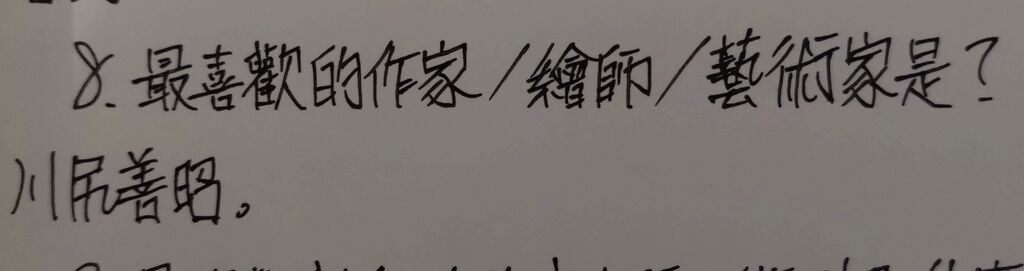 8. 最喜歡的作家/繪師/藝術家是?
川尻善昭。